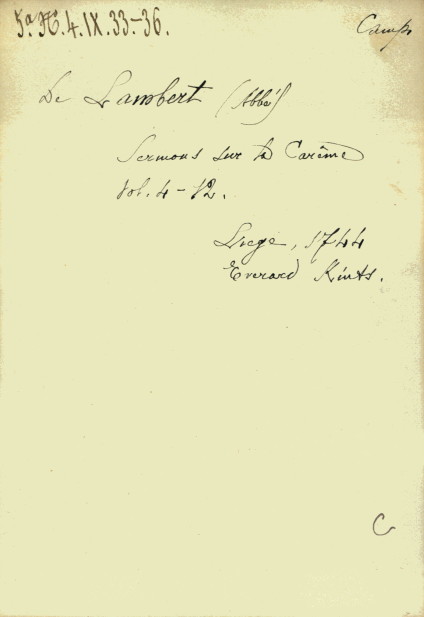 5ª H.4.IX.33-36.
Camp
De Lambert (Abbé)
Sermons sur le Carême
Vol. 4-12.
Liege, 1744
Everard Kints.
C